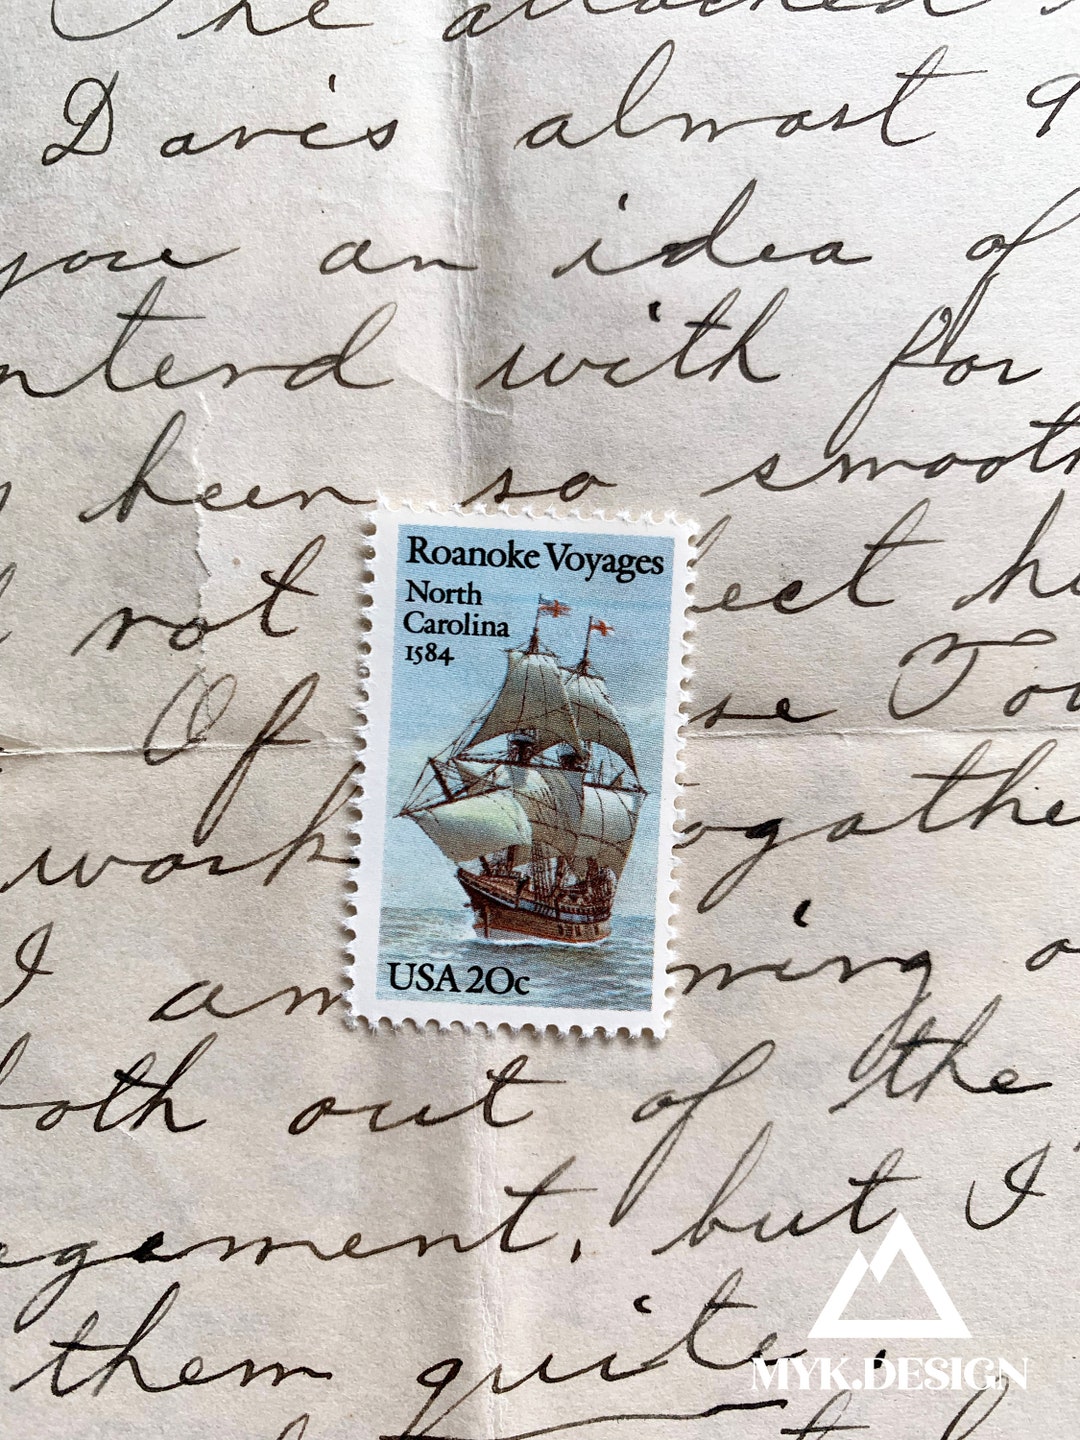 The attached
Davis almost
you an idea of
with for
been so smooth
not
Of
work
I am
both out of the
but I
them quite.
Roanoke Voyages
North
Carolina
1584
USA 20c
MYK.DESIGN